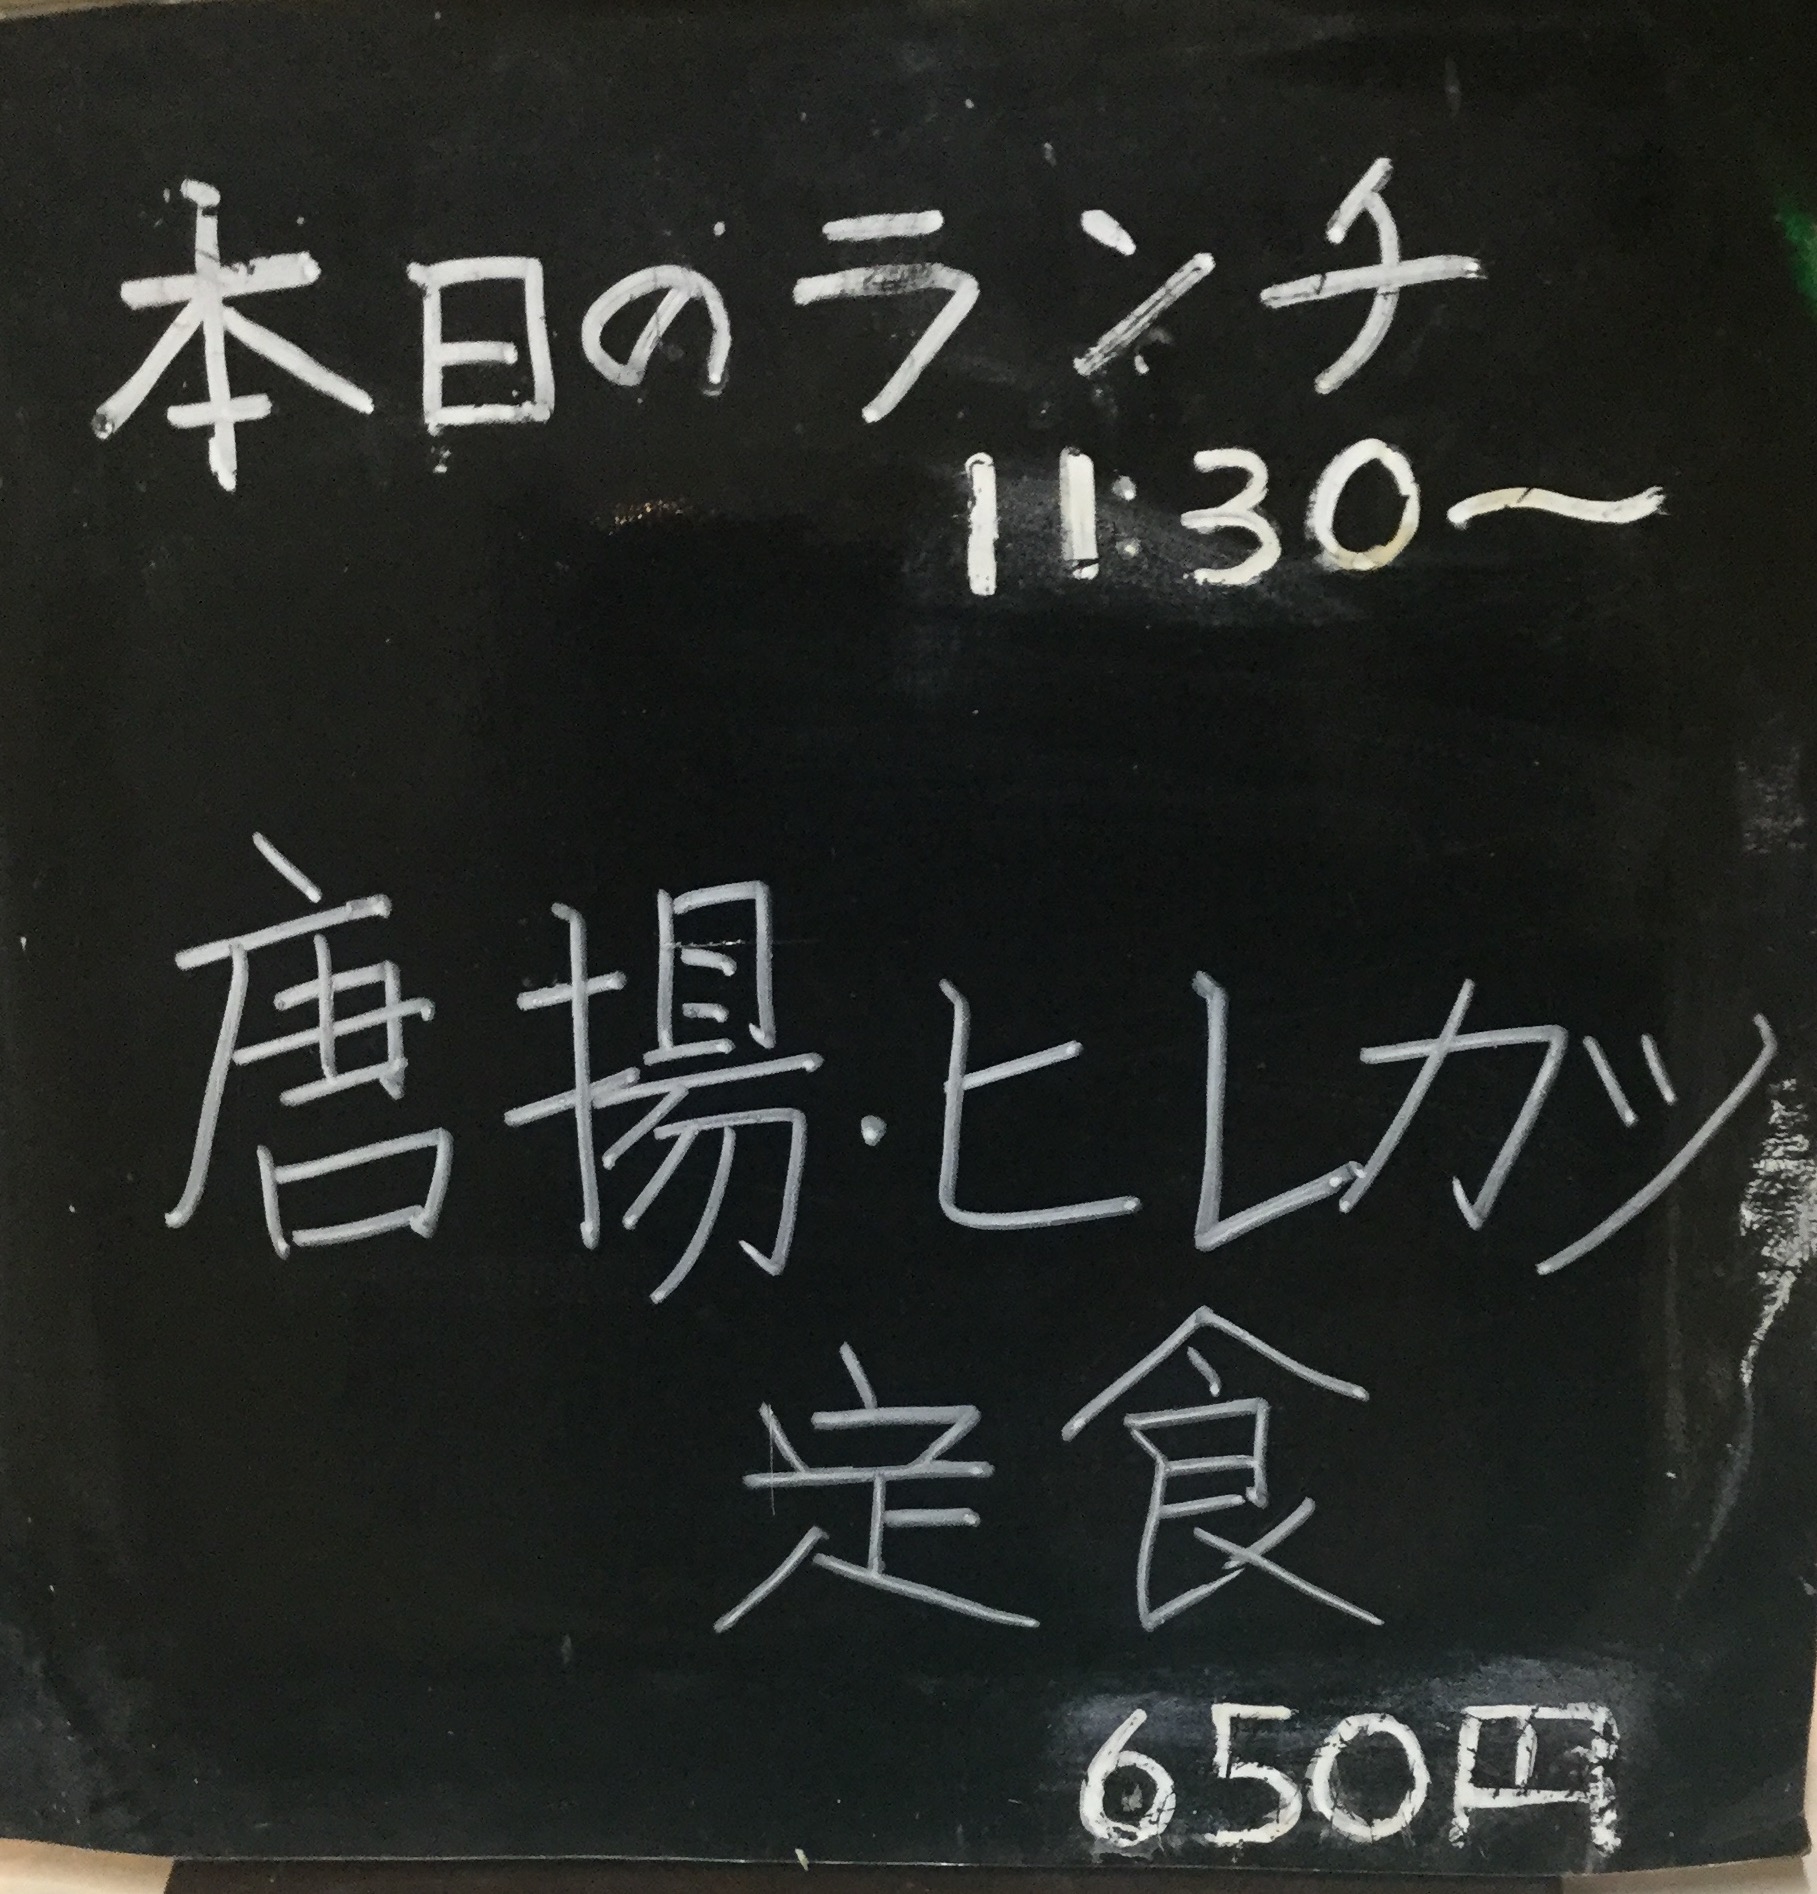 本日のランチ
11:30〜
唐揚・ヒレカツ
定食
650円